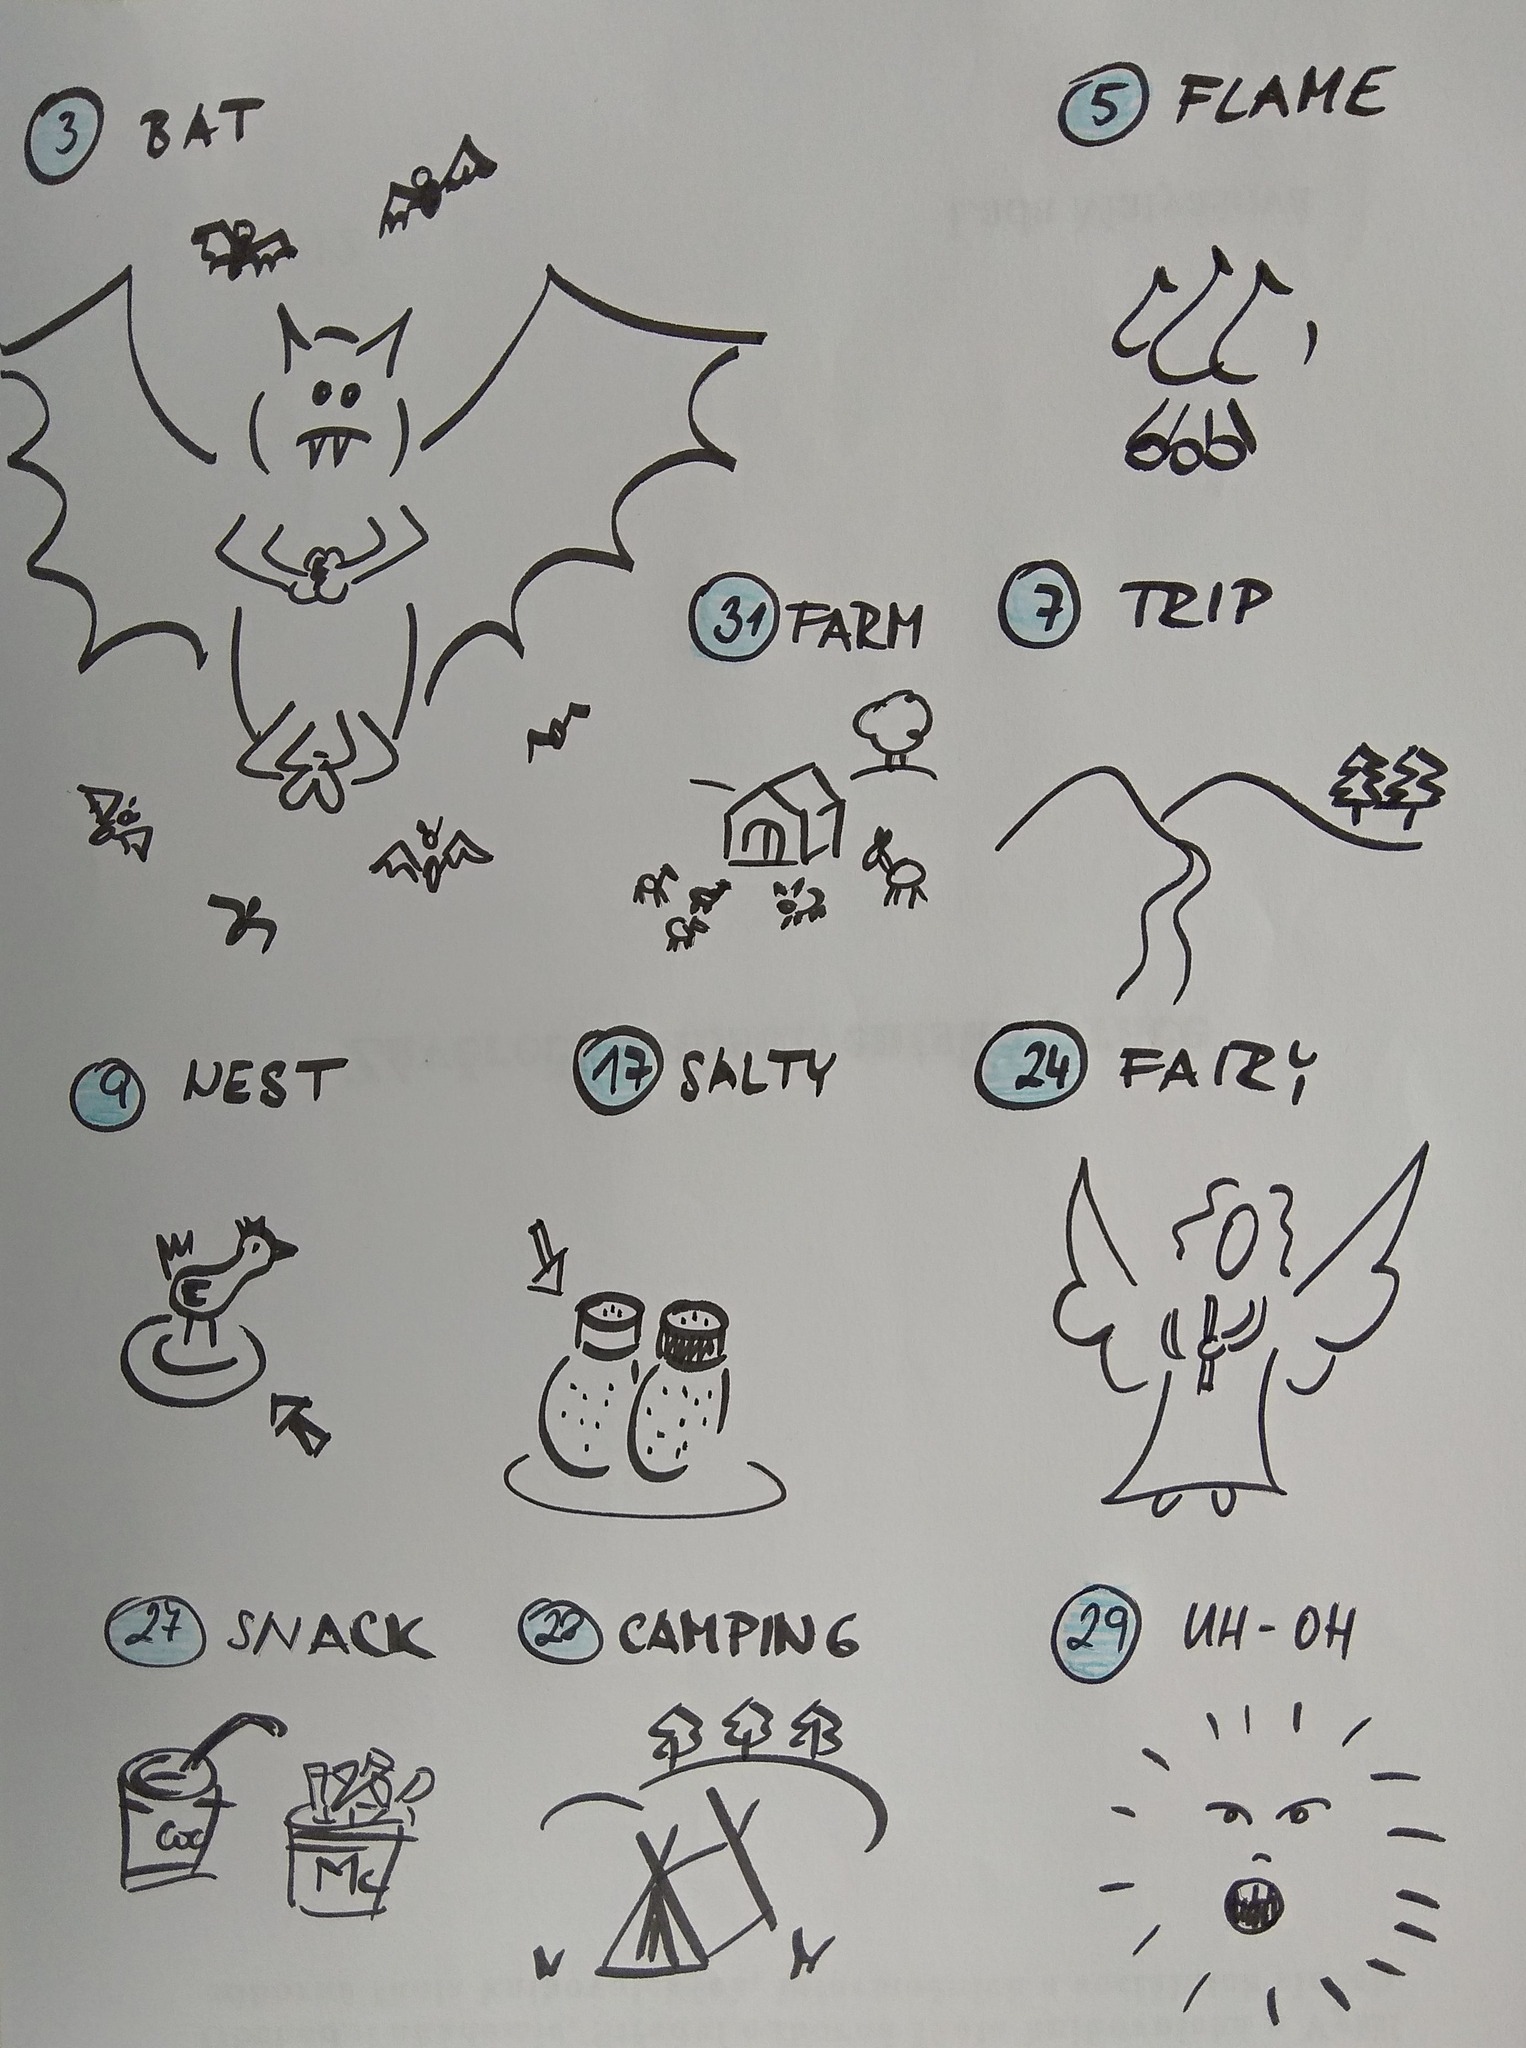 3 BAT
5 FLAME
31 FARM
7 TRIP
9 NEST
17 SALTY
24 FAIRY
27 SNACK
28 CAMPING
29 UH-OH
Coc
Mc